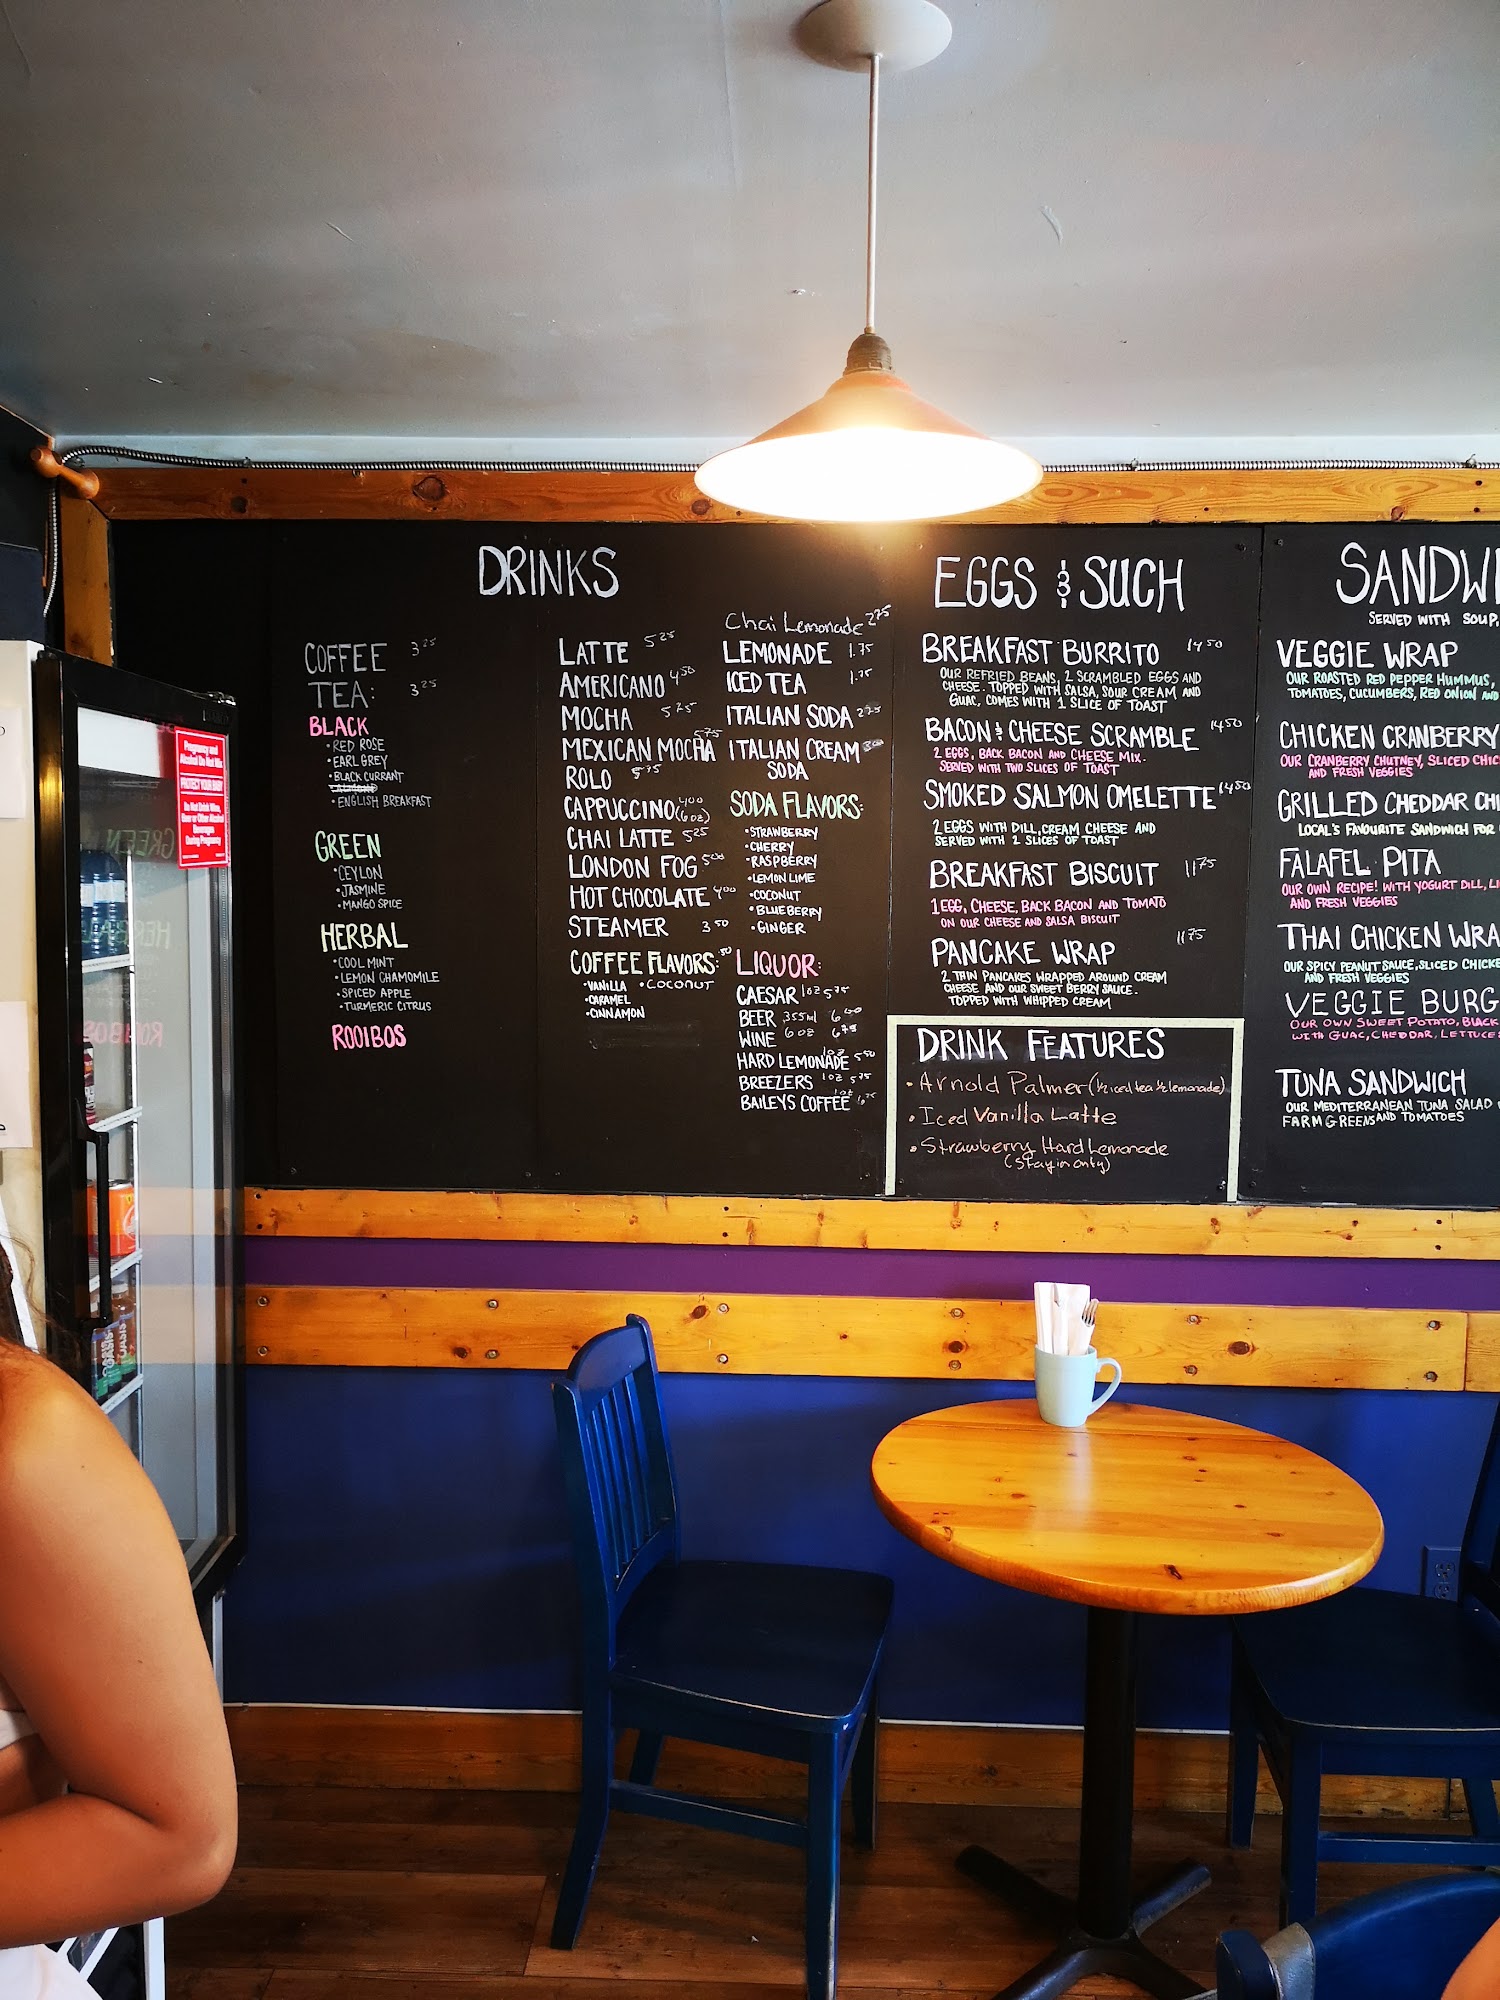 DRINKS
COFFEE 3.25
TEA: 3.25
BLACK
• RED ROSE
• EARL GREY
• BLACK CURRANT
• ENGLISH BREAKFAST
GREEN
• CEYLON
• JASMINE
• MANGO SPICE
HERBAL
• COOL MINT
• LEMON CHAMOMILE
• SPICED APPLE
• TURMERIC CITRUS
ROOIBOS
LATTE 5.25
AMERICANO 4.50
MOCHA 5.75
MEXICAN MOCHA 5.75
ROLO 5.75
CAPPUCCINO 4.00
(6 oz)
CHAI LATTE 5.25
LONDON FOG 5.00
HOT CHOCOLATE 4.00
STEAMER 3.50
COFFEE FLAVORS: .50
• VANILLA • COCONUT
• CARAMEL
• CINNAMON
Chai Lemonade 2.75
LEMONADE 1.75
ICED TEA 1.75
ITALIAN SODA 2.75
ITALIAN CREAM
SODA
SODA FLAVORS:
• STRAWBERRY
• CHERRY
• RASPBERRY
• LEMON LIME
• COCONUT
• BLUEBERRY
• GINGER
LIQUOR:
CAESAR 1oz 5.75
BEER 355ml 6.00
WINE 6oz 6.75
HARD LEMONADE 1oz 5.50
BREEZERS 1oz 5.75
BAILEYS COFFEE 1oz 6.75
EGGS & SUCH
BREAKFAST BURRITO 14.50
OUR REFRIED BEANS, 2 SCRAMBLED EGGS AND
CHEESE. TOPPED WITH SALSA, SOUR CREAM AND
GUAC, COMES WITH 1 SLICE OF TOAST
BACON & CHEESE SCRAMBLE 14.50
2 EGGS, BACK BACON AND CHEESE MIX.
SERVED WITH TWO SLICES OF TOAST
SMOKED SALMON OMELETTE 14.50
2 EGGS WITH DILL, CREAM CHEESE AND
SERVED WITH 2 SLICES OF TOAST
BREAKFAST BISCUIT 11.75
1 EGG, CHEESE, BACK BACON AND TOMATO
ON OUR CHEESE AND SALSA BISCUIT
PANCAKE WRAP 11.75
2 THIN PANCAKES WRAPPED AROUND CREAM
CHEESE AND OUR SWEET BERRY SAUCE.
TOPPED WITH WHIPPED CREAM
DRINK FEATURES
• Arnold Palmer (½ iced tea ½ lemonade)
• Iced Vanilla Latte
• Strawberry Hard Lemonade
(stay in only)
SANDWI
SERVED WITH SOUP,
VEGGIE WRAP
OUR ROASTED RED PEPPER HUMMUS,
TOMATOES, CUCUMBERS, RED ONION AND
CHICKEN CRANBERRY
OUR CRANBERRY CHUTNEY, SLICED CHIC
AND FRESH VEGGIES
GRILLED CHEDDAR CH
LOCAL'S FAVOURITE SANDWICH FOR
FALAFEL PITA
OUR OWN RECIPE! WITH YOGURT DILL, L
AND FRESH VEGGIES
THAI CHICKEN WRA
OUR SPICY PEANUT SAUCE, SLICED CHICKE
AND FRESH VEGGIES
VEGGIE BURG
OUR OWN SWEET POTATO, BLACK
WITH GUAC, CHEDDAR, LETTUCE
TUNA SANDWICH
OUR MEDITERRANEAN TUNA SALAD
FARM GREENS AND TOMATOES
Pregnancy and
Alcohol Do Not Mix
PROTECT YOUR BABY
Do Not Drink Wine,
Beer or Other Alcohol
Beverages
During Pregnancy
OASIS